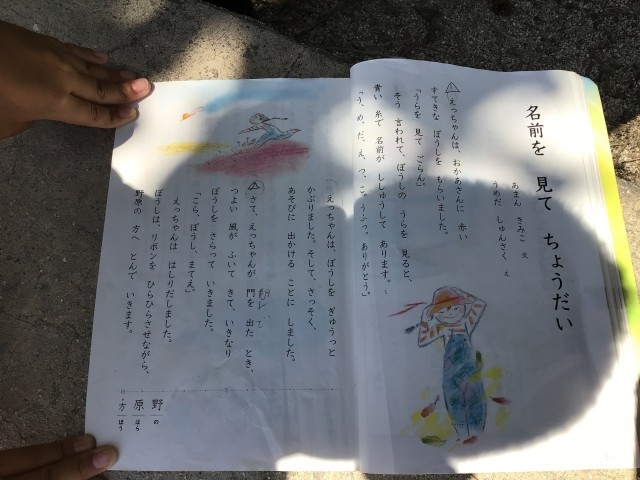 名前を 見て ちょうだい
あまん きみこ 文
うめだ しゅんさく え
1 えっちゃんは、おかあさんに 赤い
すてきな ぼうしを もらいました。
「うらを 見て ごらん。」
そう 言われて、ぼうしの うらを 見ると、
青い 糸で 名前が ししゅうして あります。
「う、め、だ、え、つ、こ。うふっ。ありがとう。」
えっちゃんは、ぼうしを ぎゅうっと
かぶりました。そして、さっそく、
あそびに 出かける ことに しました。
さて、えっちゃんが 門を 出た とき、
つよい 風が ふいて きて、いきなり
ぼうしを さらって いきました。
「こら、ぼうし、まてえ。」
えっちゃんは はしりだしました。
ぼうしは、リボンを ひらひらさせながら、
野原の 方へ とんで いきます。
野 の
原 はら
方 ほう